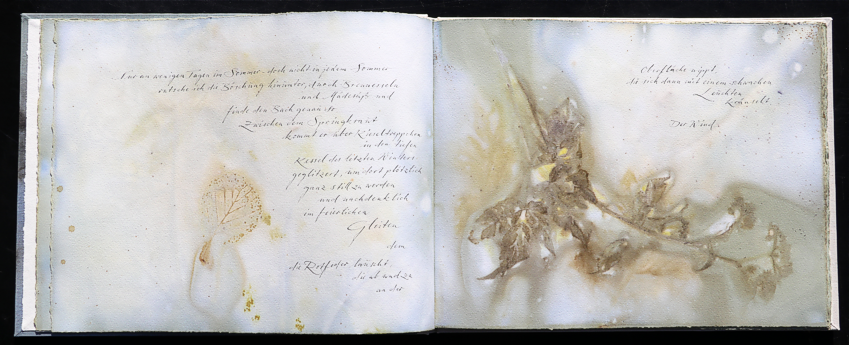 Nur an wenigen Tagen im Sommer - doch nicht in jedem Sommer
rutsche ich die Böschung hinunter, durch Brennesseln
und Mädesüß und
finde den Bach genau so
Zwischen dem Springkraut
kommt er über Kieseltreppchen
in den tiefen
Kessel des letzten Winters
geglitzert, um dort plötzlich
ganz still zu werden
und nachdenklich
im feierlichen
Gleiten
dem
die Rotfeder lauscht
die ab und zu
an der
Oberfläche nippt,
die sich dann mit einem schwachen
Leuchten
kräuselt
Der Wind